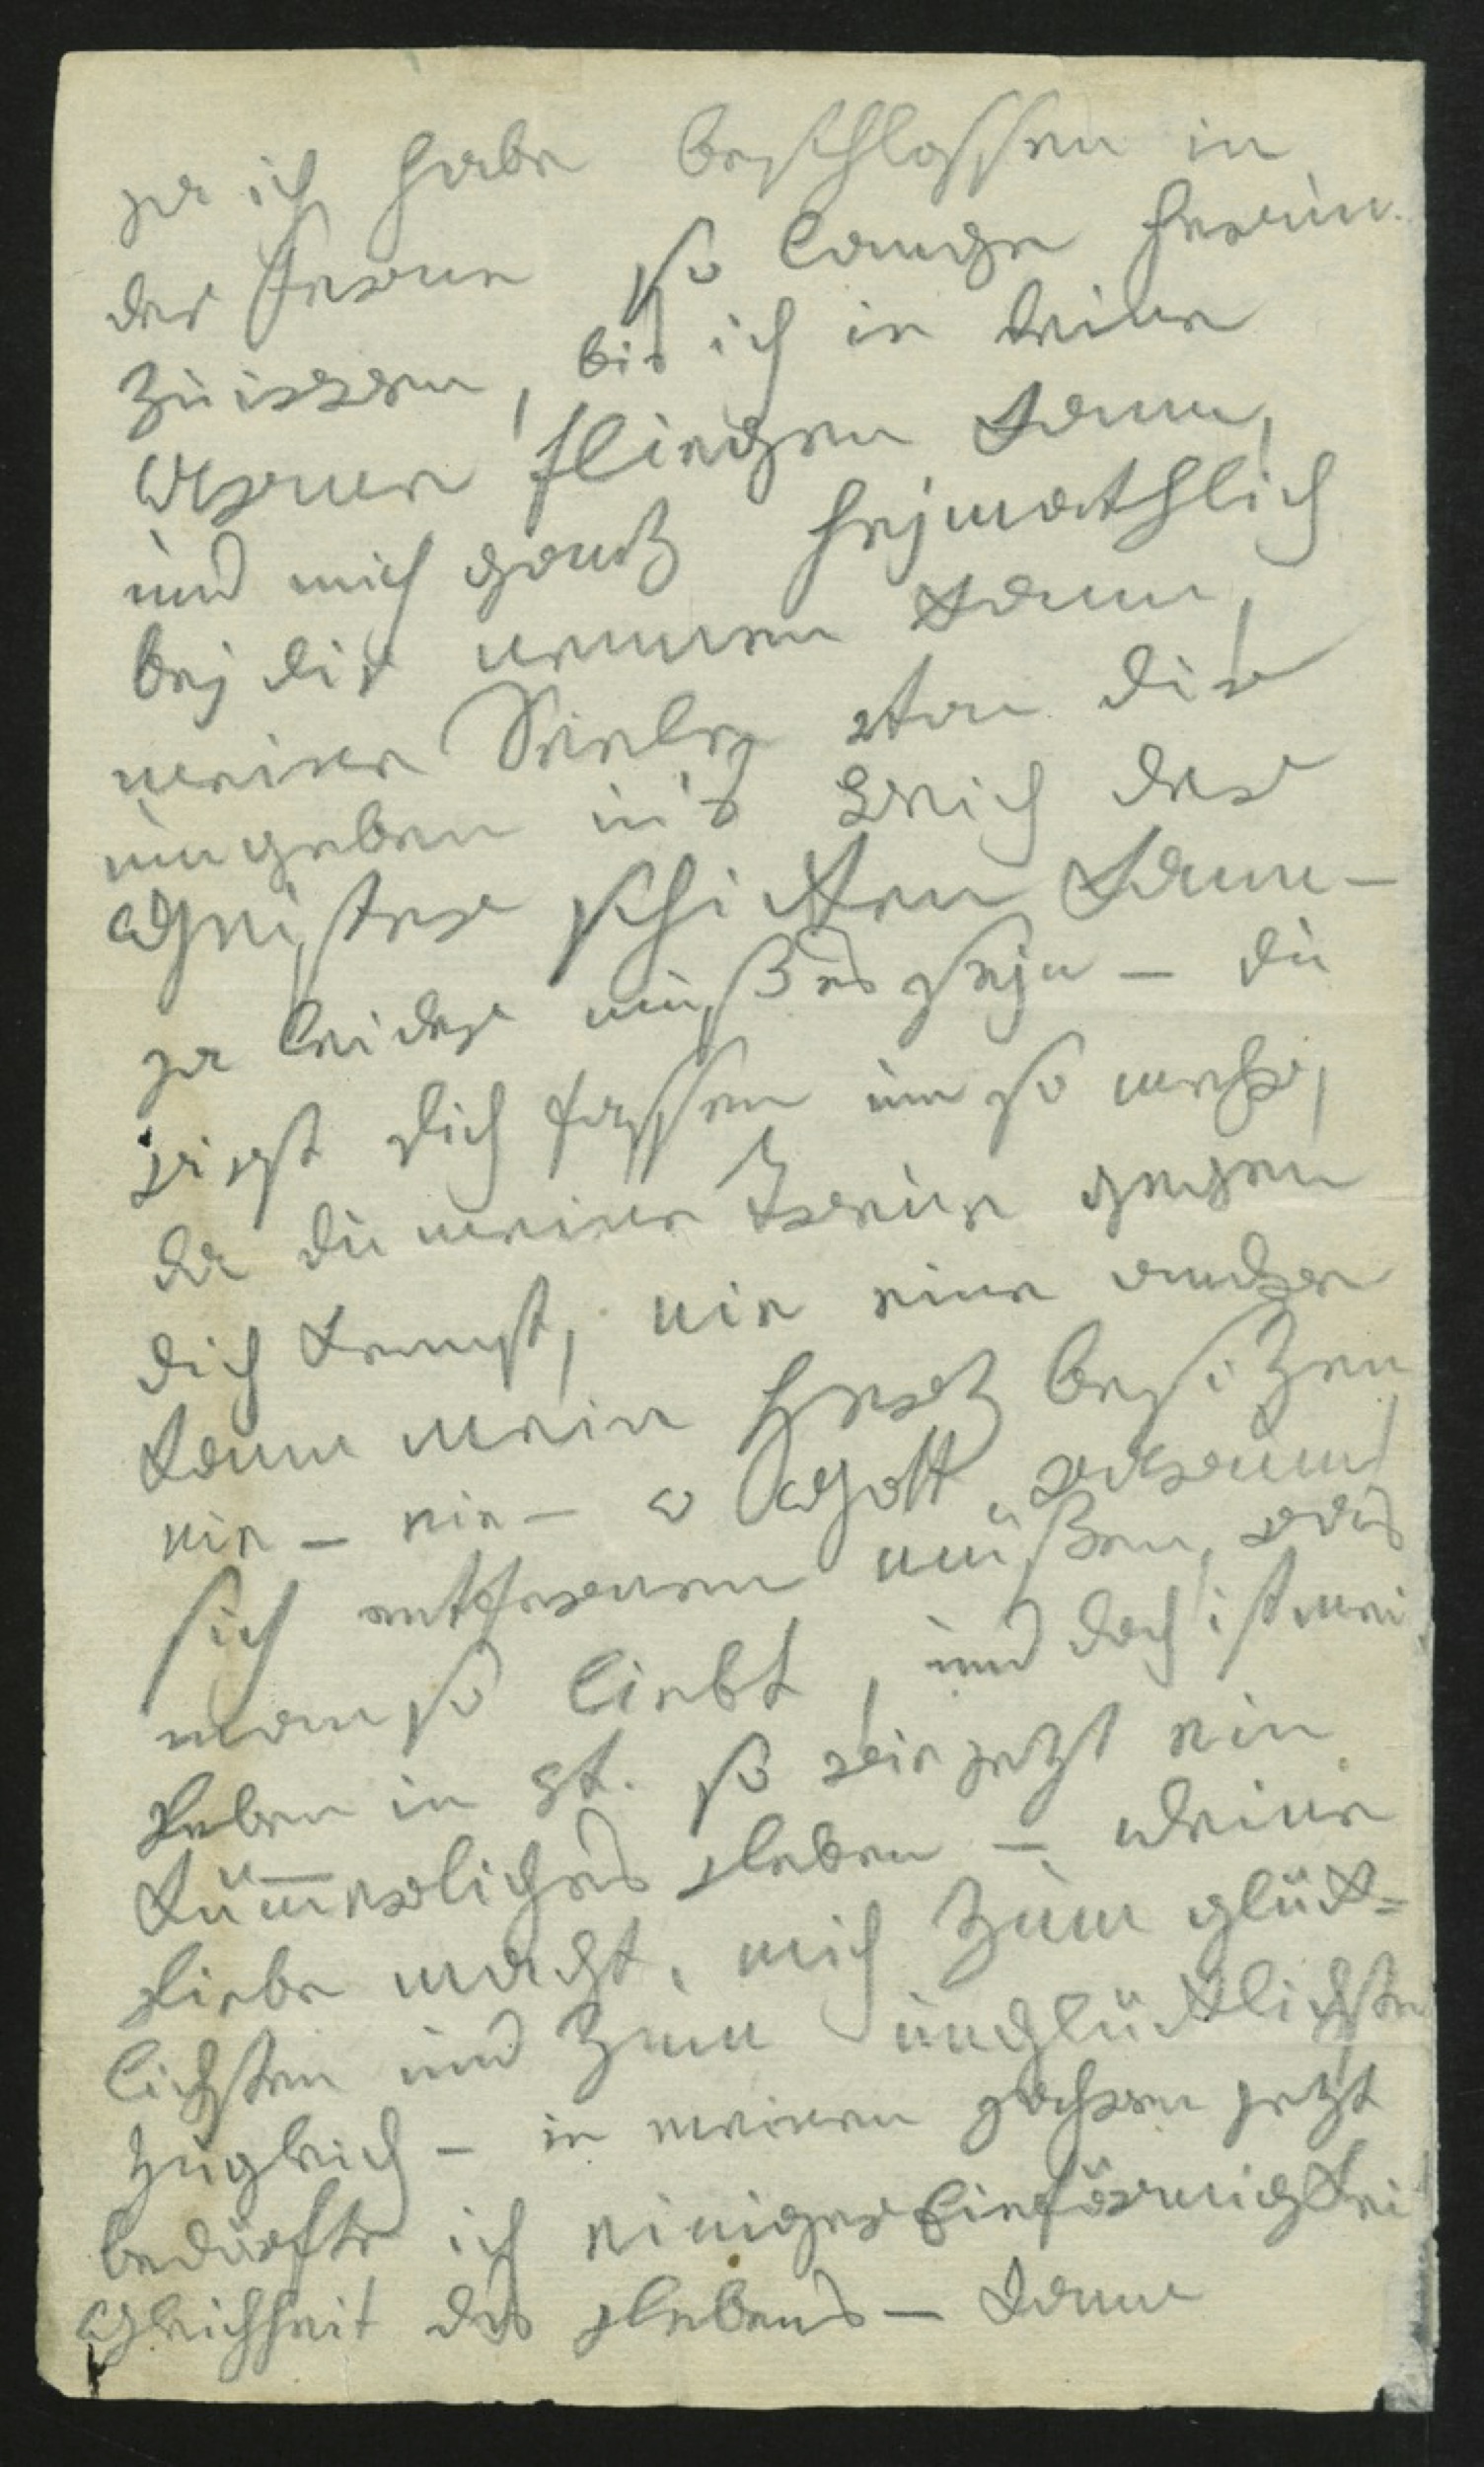 ja ich habe beschlossen in
der Ferne so lange herum
zuirren, bis ich in deine
Arme fliegen kann,
und mich ganz heimathlich
bej dir nennen kann,
meine Seele von dir
umgeben in's Reich der
Geister schicken kann —
ja leider muß es sejn — du
wirst dich fassen um so mehr,
da du meine Treue gegen
dich kennst, nie eine andre
kann mein Herz besizen
nie — nie — o Gott warum
sich entfernen müßen, was
man so liebt, und doch ist mei
Leben in W. so wie jezt ein
kümmerliches Leben — deine
Liebe macht mich zum glück=
lichsten und zum unglücklichsten
zugleich — in meinen Jahren jezt
bedürfte ich einiger Einförmigkei
Gleichheit des Lebens — kann